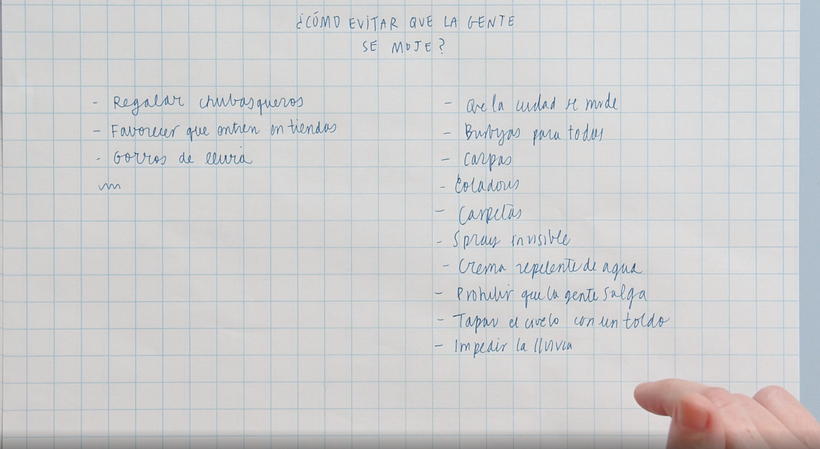 ¿CÓMO EVITAR QUE LA GENTE
SE MOJE?
- Regalar chubasqueros
- Favorecer que entren en tiendas
- Gorros de lluvia
- Que la ciudad se mude
- Burbujas para todas
- Carpas
- Coladores
- Carpetas
- Spray invisible
- Crema repelente de agua
- Prohibir que la gente salga
- Tapar el cielo con un toldo
- Impedir la lluvia